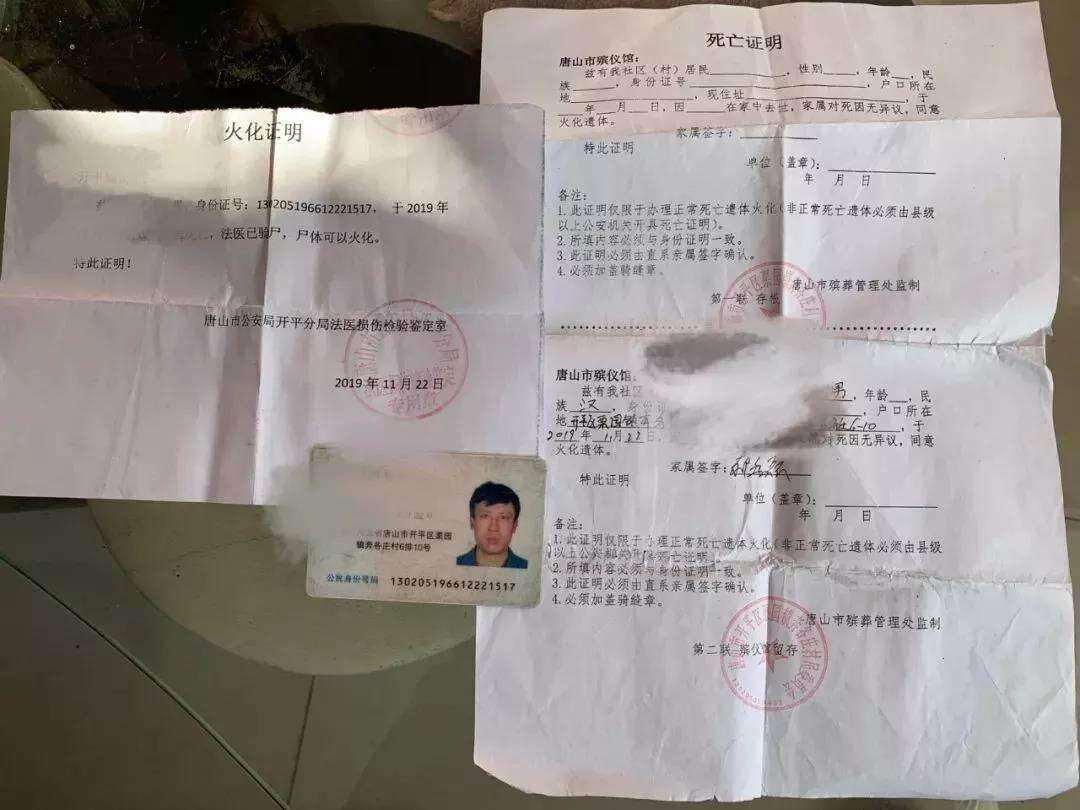 火化证明
身份证号：130205196612221517，于 2019 年
，法医已验尸，尸体可以火化。
特此证明！
唐山市公安局开平分局法医损伤检验鉴定室
2019 年 11 月 22 日
唐山市开平区栗园
镇奔各庄村6排10号
公民身份号码 130205196612221517
死亡证明
唐山市殡仪馆：
兹有我社区（村）居民__________，性别____，年龄__，民
族______，身份证号__________________，户口所在
地______________，现住址__________________，于
____年___月___日，因____在家中去世，家属对死因无异议，同意
火化遗体。
家属签字：__________
特此证明
单位（盖章）：__________
年 月 日
备注：
1.此证明仅限于办理正常死亡遗体火化（非正常死亡遗体必须由县级
以上公安机关开具死亡证明）。
2.所填内容必须与身份证明一致。
3.此证明必须由直系亲属签字确认。
4.必须加盖骑缝章。
唐山市殡葬管理处监制
第一联 存根
唐山市殡仪馆：
兹有我社区 男，年龄__，民
族 汉，身份 ，户口所在
地 6-10，于
2019 年 11 月 22 日， 对死因无异议，同意
火化遗体。
家属签字：
特此证明
单位（盖章）：__________
年 月 日
备注：
1.此证明仅限于办理正常死亡遗体火化（非正常死亡遗体必须由县级
以上公安机关开具死亡证明）。
2.所填内容必须与身份证明一致。
3.此证明必须由直系亲属签字确认。
4.必须加盖骑缝章。
唐山市殡葬管理处监制
第二联 殡仪馆留存